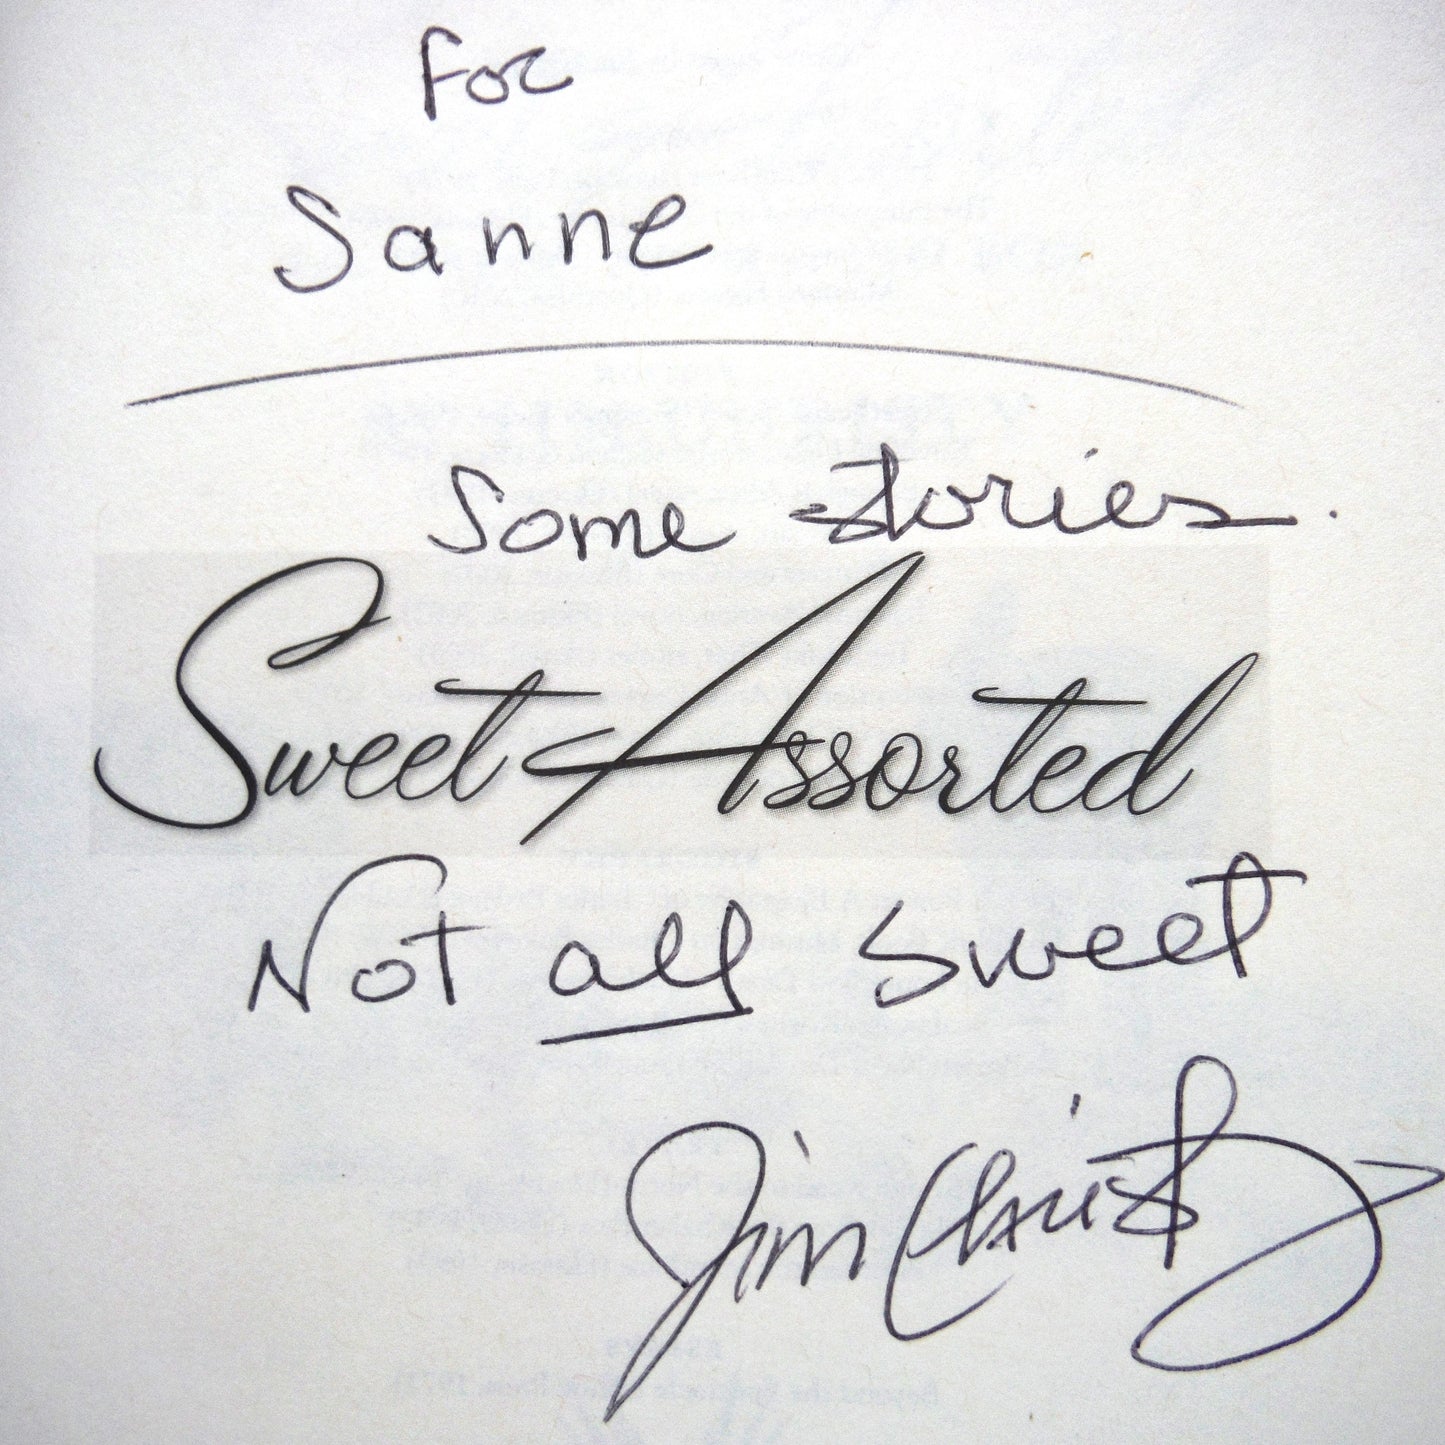 For
Sanne
Some stories.
Sweet Assorted
Not all sweet
Jim Christy